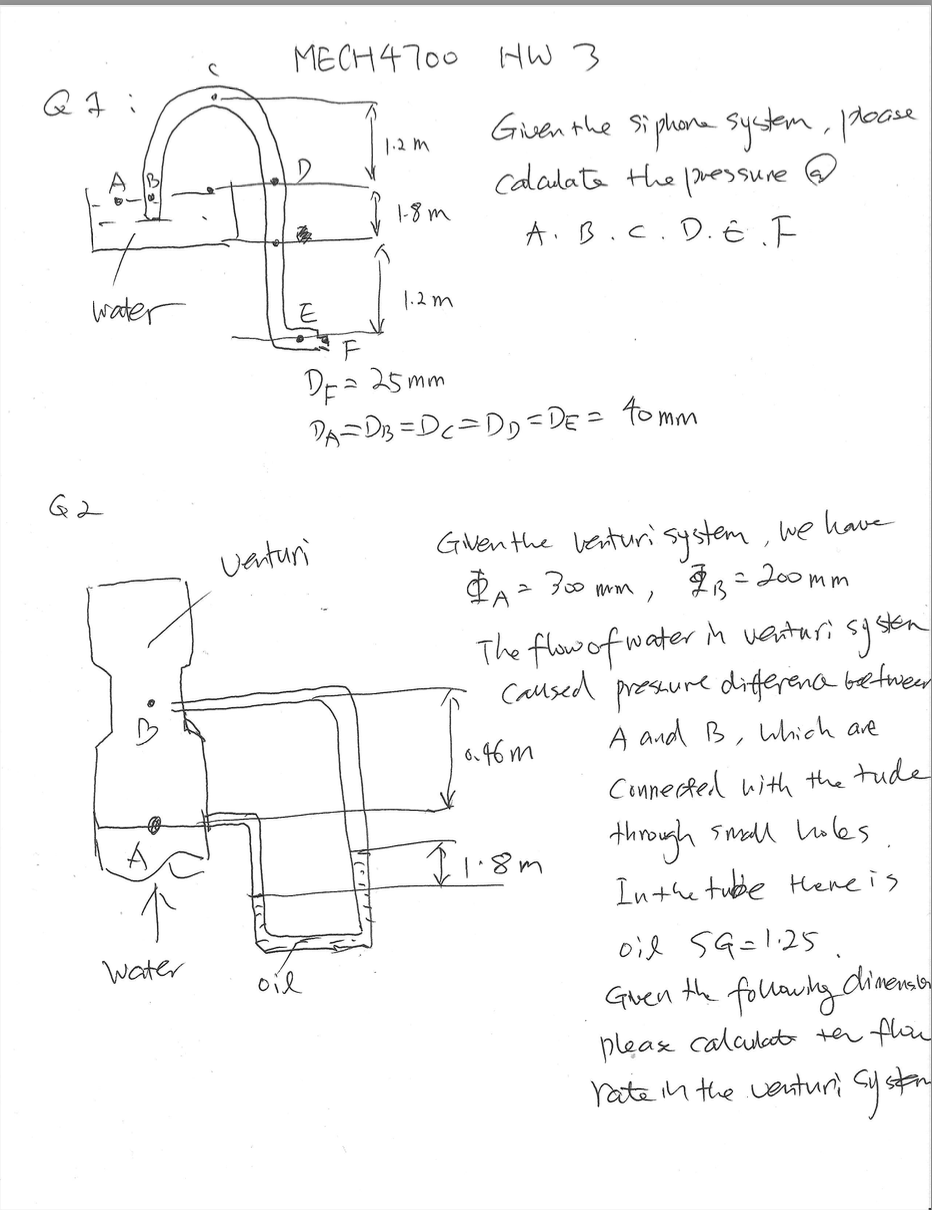 MECH4700 HW 3
Q1:
C
1.2 m
A B
D
1.8 m
water
1.2 m
E
F
D_F = 25 mm
D_A = D_B = D_C = D_D = D_E = 40 mm
Given the siphone system, please
calculate the pressure @
A. B. C. D. E. F
Q2
venturi
B
A
0.46 m
1.8 m
water
oil
Given the venturi system, we have
Φ_A = 300 mm, Φ_B = 200 mm
The flow of water in venturi system
caused pressure difference between
A and B, which are
Connected with the tude
through small holes.
In the tube there is
oil SG = 1.25.
Given the following dimension
please calculate ter flow
rate in the venturi system